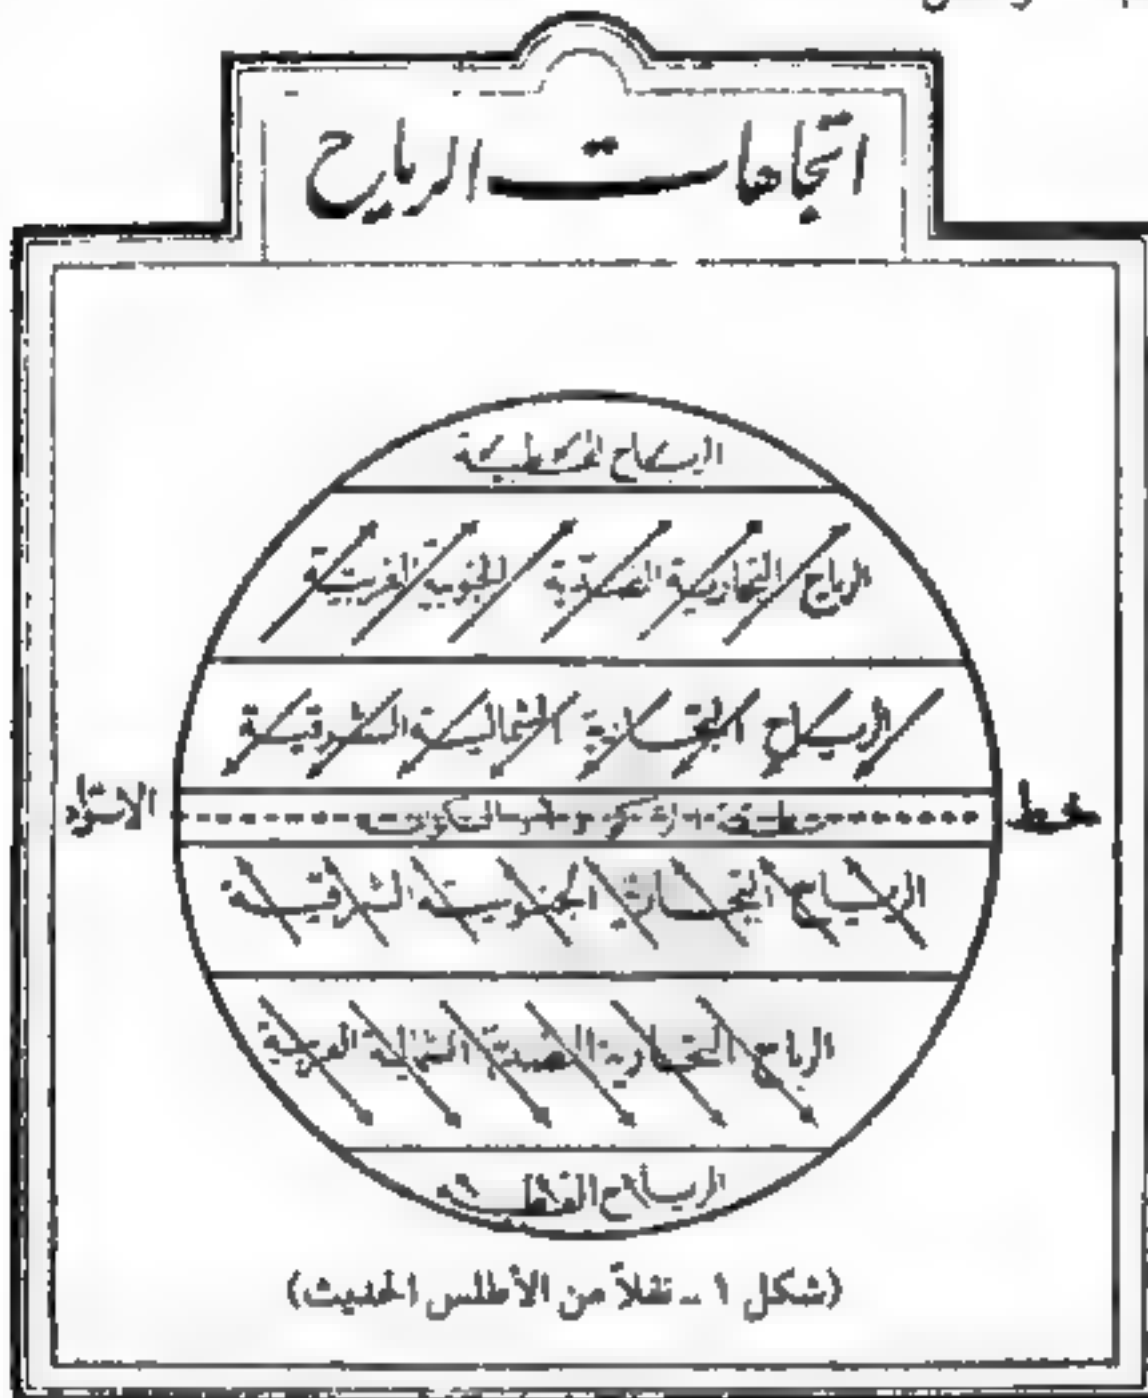 اتجاهات الرياح
الرياح القطبية
الرياح التجارية الضدية الجنوبية الغربية
الرياح التجارية الشمالية الشرقية
خط
الاستواء
منطقة الركود أو السكون
الرياح التجارية الجنوبية الشرقية
الرياح التجارية الضدية الشمالية الغربية
الرياح القطبية
(شكل ١ - نقلاً من الأطلس الحديث)